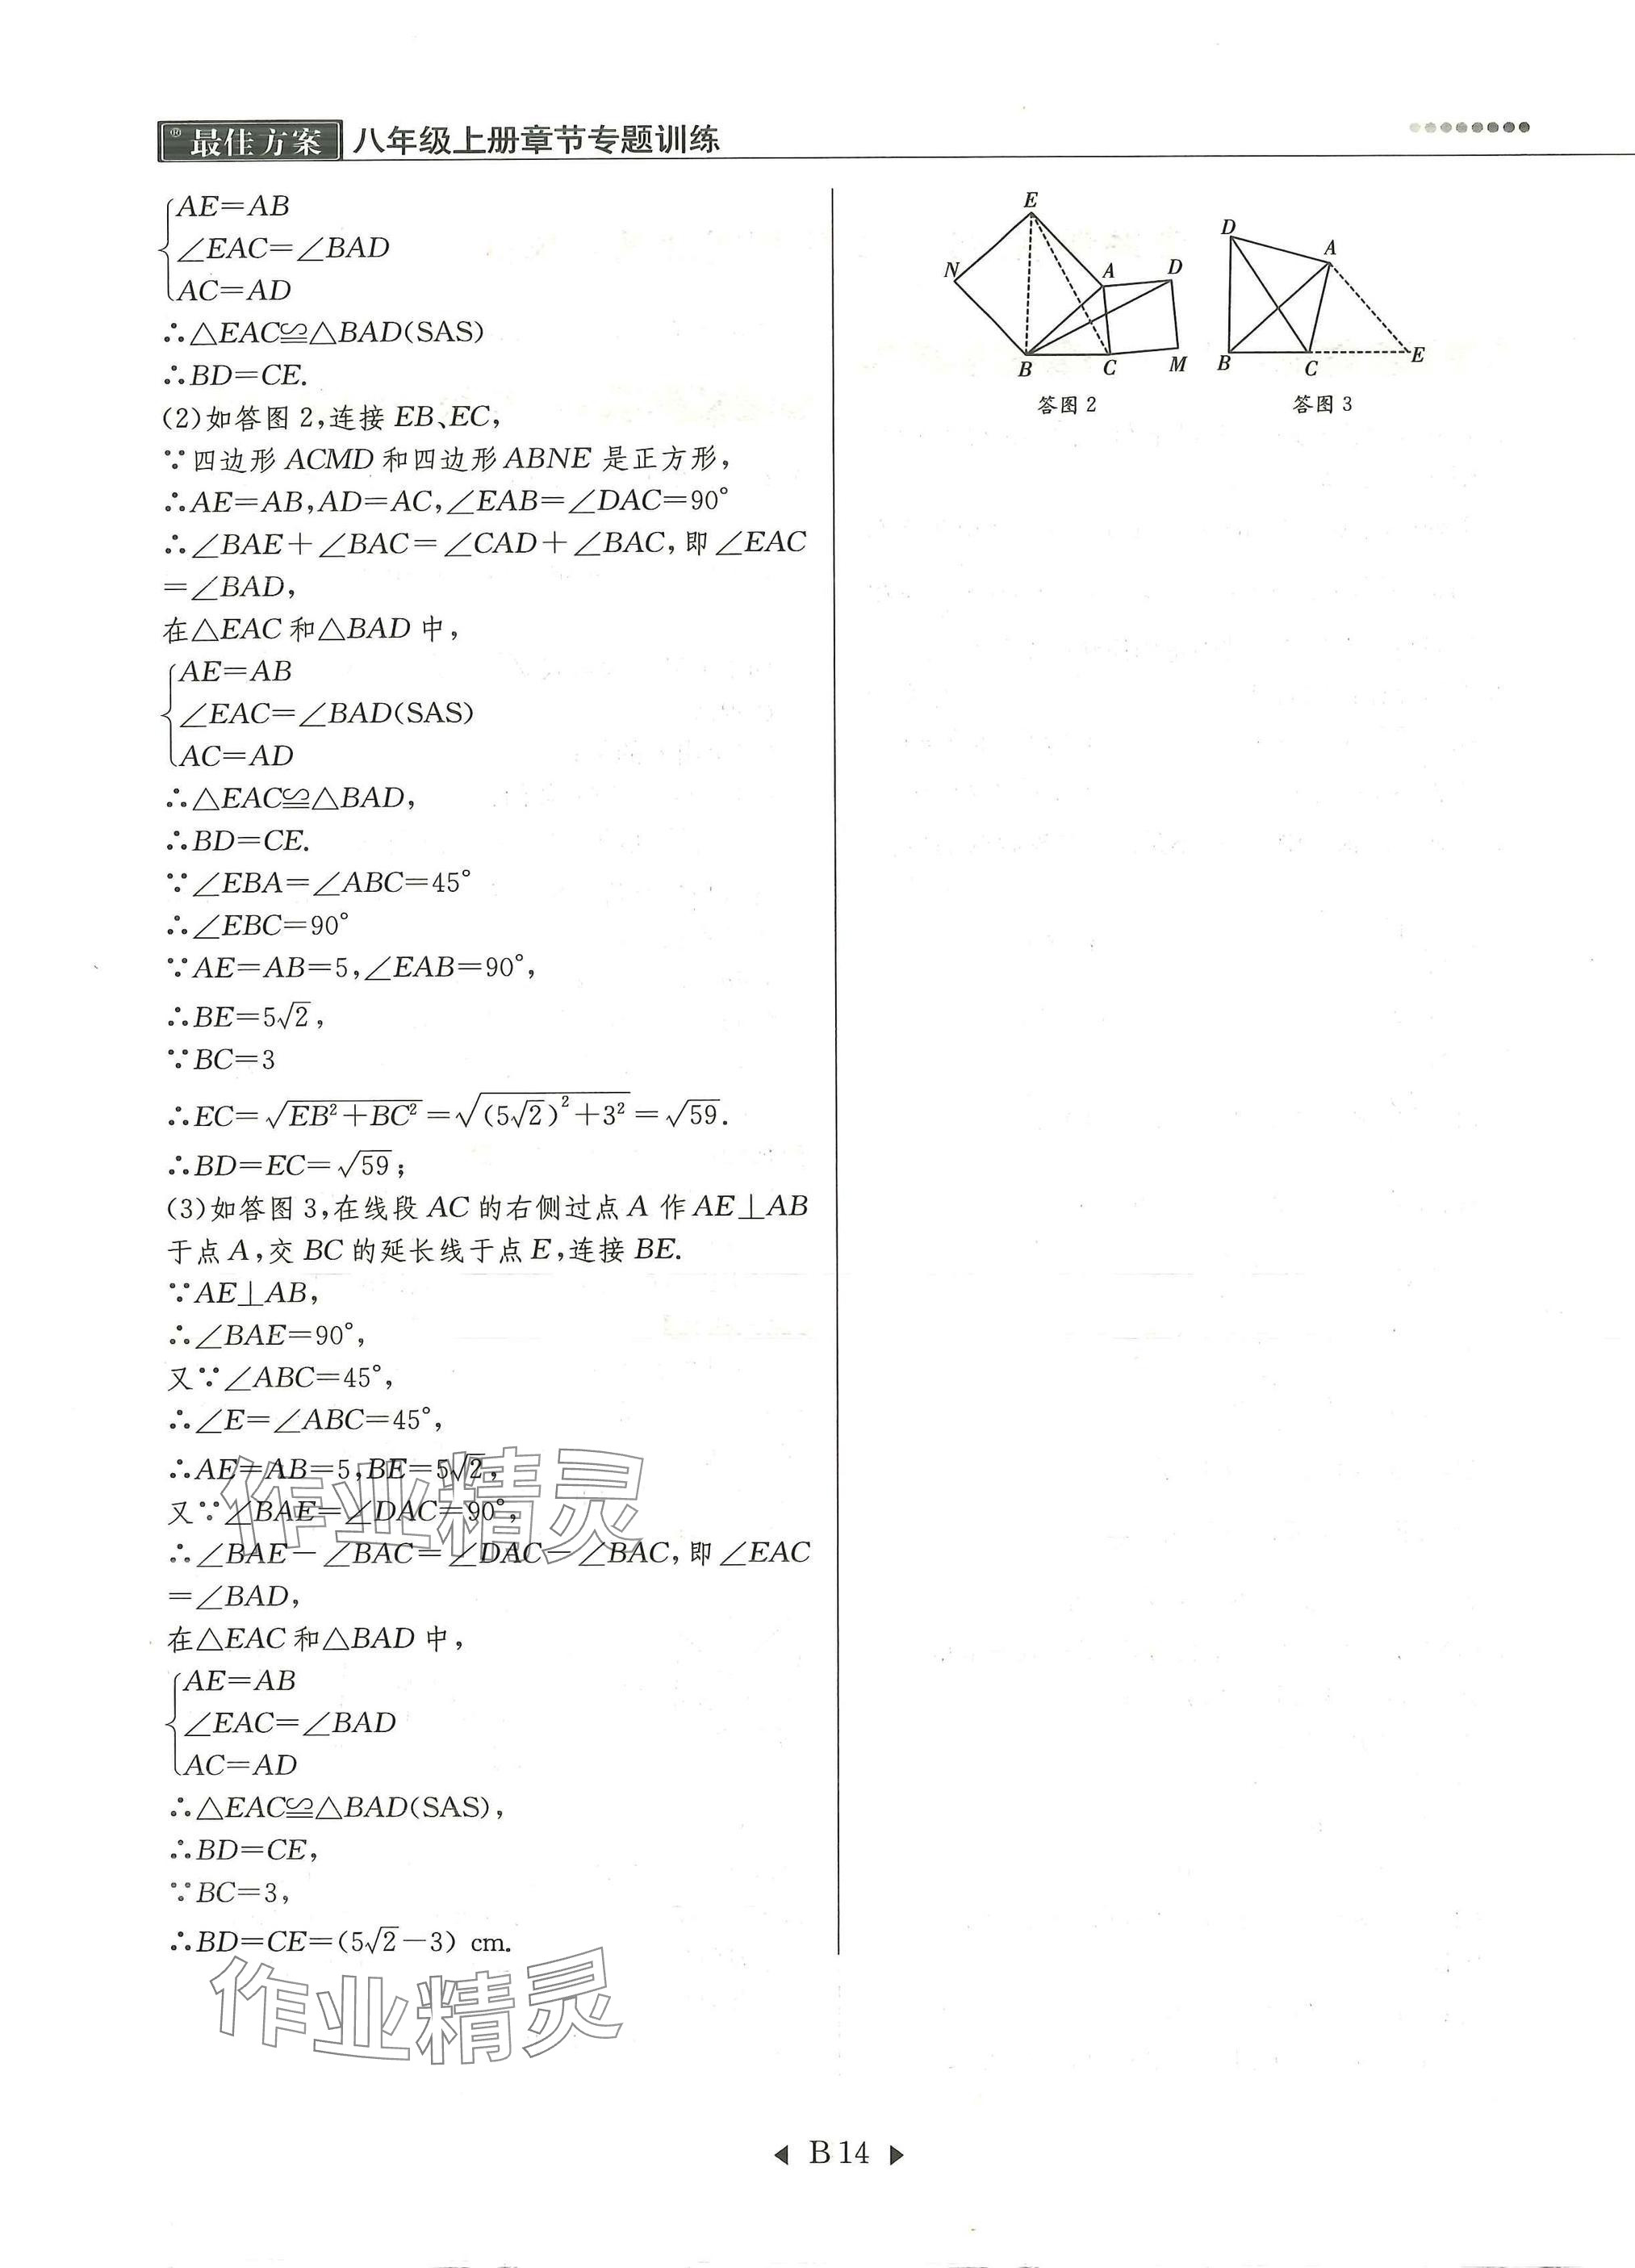 ®最佳方案 八年级上册章节专题训练
AE=AB
∠EAC=∠BAD
AC=AD
∴△EAC≌△BAD(SAS)
∴BD=CE.
(2)如答图2,连接EB、EC,
∵四边形ACMD和四边形ABNE是正方形,
∴AE=AB,AD=AC,∠EAB=∠DAC=90°
∴∠BAE+∠BAC=∠CAD+∠BAC,即∠EAC
=∠BAD,
在△EAC和△BAD中,
AE=AB
∠EAC=∠BAD(SAS)
AC=AD
∴△EAC≌△BAD,
∴BD=CE.
∵∠EBA=∠ABC=45°
∴∠EBC=90°
∵AE=AB=5,∠EAB=90°,
∴BE=5√2,
∵BC=3
∴EC=√(EB²+BC²)=√((5√2)²+3²)=√59.
∴BD=EC=√59;
(3)如答图3,在线段AC的右侧过点A作AE⊥AB
于点A,交BC的延长线于点E,连接BE.
∵AE⊥AB,
∴∠BAE=90°,
又∵∠ABC=45°,
∴∠E=∠ABC=45°,
∴AE=AB=5,BE=5√2,
又∵∠BAE=∠DAC=90°,
∴∠BAE-∠BAC=∠DAC-∠BAC,即∠EAC
=∠BAD,
在△EAC和△BAD中,
AE=AB
∠EAC=∠BAD
AC=AD
∴△EAC≌△BAD(SAS),
∴BD=CE,
∵BC=3,
∴BD=CE=(5√2-3) cm.
作业精灵
作业精灵
E
N
A
D
B
C
M
答图2
D
A
B
C
E
答图3
B14